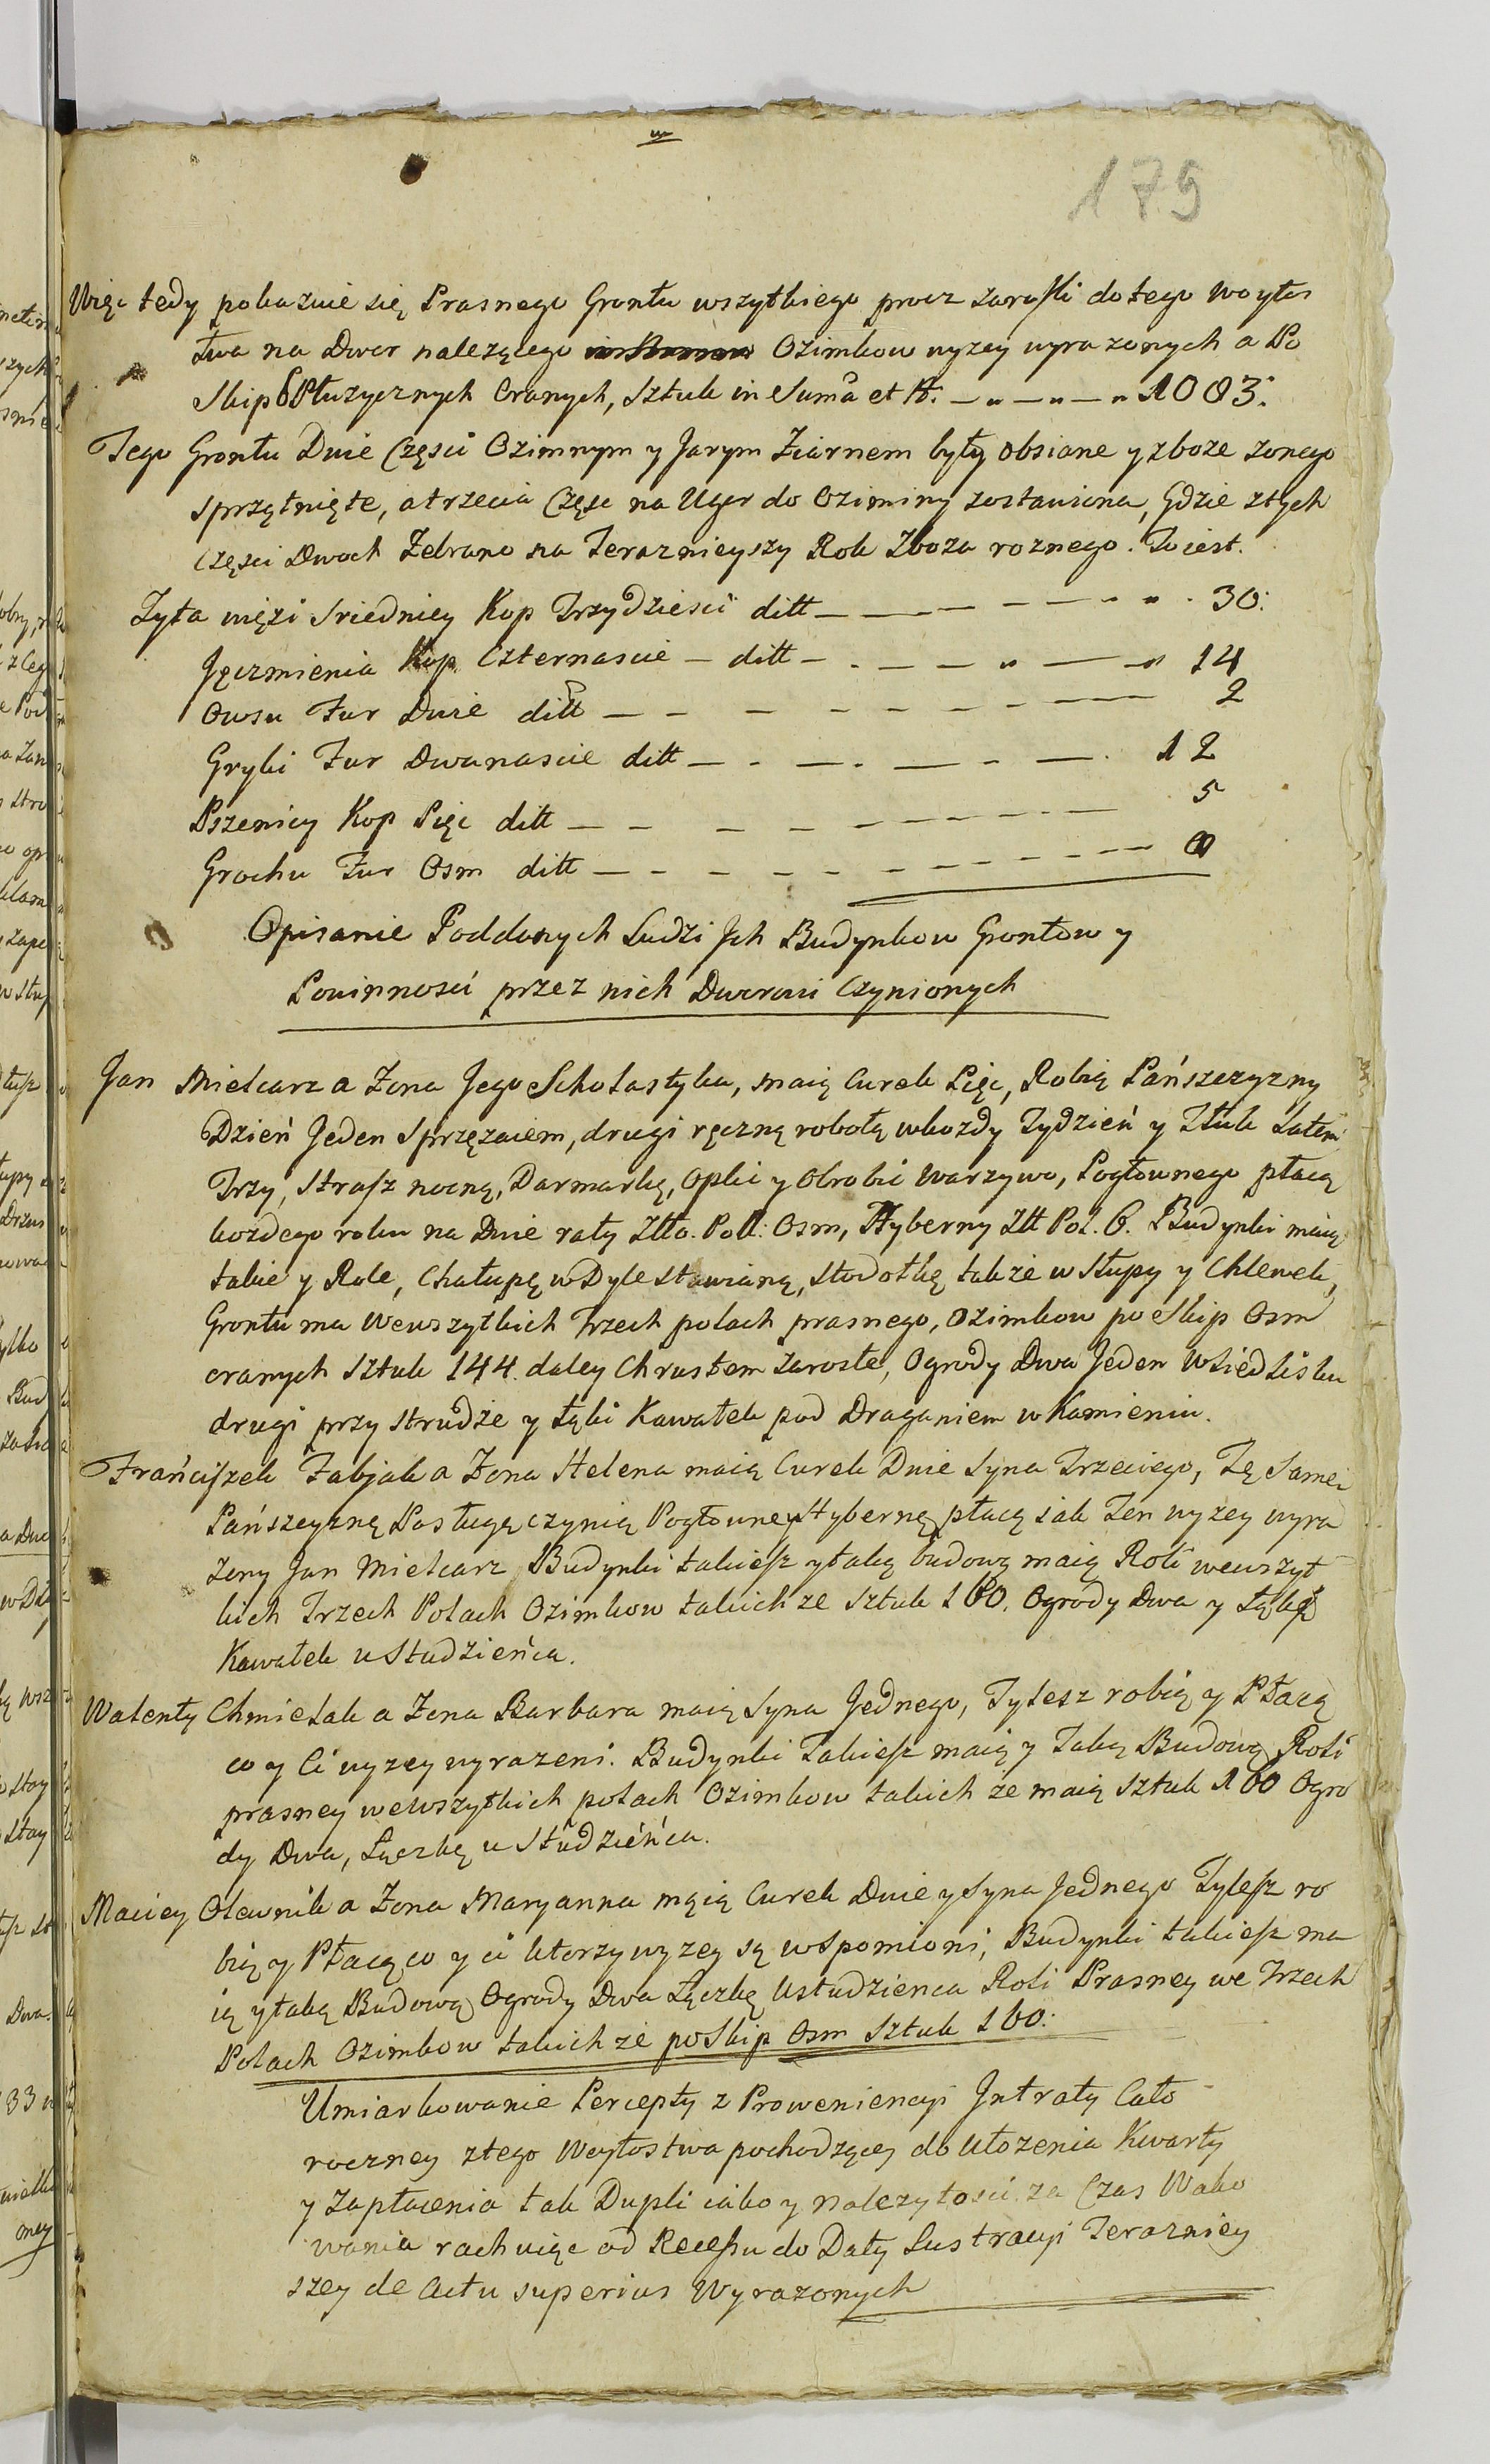 179
Więc tedy pokazuie się Prasnego Grontu wszytkiego procz zarosli do tego Woytos
twa na Dwor nalezącego Ozimkow wyzey wyrazonych a Po
Skip 8 Płuzycznych Oranych, Sztuk in Suma et N. 1083:
Tego Grontu Dwie Częsci Ozimnym y Jarym Ziarnem były obsiane y zboze zonego
sprzątnięte, a trzecia Częsc na Ugor do Oziminy zostawiona, Gdzie z tych
Częsci Dwoch Zebrano na Teraznieyszy Rok Zboza roznego. To iest.
Zyta więzi Sriedniey Kop Trzydziesci ditt — 30:
Jęczmienia Kop Czternascie — ditt — 14
Owsu Fur Dwie ditt — 2
Gryki Fur Dwanascie ditt — 12
Pszenicy Kop Pięc ditt — 5
Grochu Fur Osm ditt — 8
Opisanie Poddanych Ludzi Jch Budynkow Grontow y
Powinnosci przez nich Dworowi Czynionych
Jan Mielcarz a Zona Jego Scholastyka, maią Curek Pięc, Robią Pańszczyzny
Dzień Jeden Sprzęzaiem, drugi ręczną robotą w kozdy Tydzień y Tłuk Latem
Trzy, Strasz nocną, Darmarkę, Oplic y Obrobić Warzywo, Pogłownego płacą
kozdego roku na Dwie raty Złło. Poll: Osm, Hyberny Złł Pol. 6. Budynki maią
takie y Role, Chałupę w Dyle Stawianą, Stodołkę takze w Słupy y Chlewek,
Grontu ma Wewszytkich Trzech polach prasnego, Ozimkow po Skip Osm
oranych Sztuk 144. daley Chrustem zarosłe, Ogrody Dwa Jeden W Siedlisku
drugi przy strudze y Łąki Kawałek pod Draganiem w Kamieniu.
Frańciszek Fabjak a Zona Helena maią Curek Dwie Syna Trzeciego, Tę Samei
Pańszczyznę Posługę czynią Pogłowney Hybernę płacą iak Ten wyzey wyra
zony Jan Mielcarz Budynki takiesz y taką budową maią Roli wewszyt
kich Trzech Polach Ozimkow takichze Sztuk 160. Ogrody Dwa y Łąkę
Kawałek u Studzieńca.
Walenty Chmielak a Zona Barbara maią Syna Jednego, Tylesz robią y Płacą
co y Ci wyzey wyrazeni. Budynki Takiesz maią y Taką Budową Roli
prasney wewszytkich polach Ozimkow takich ze maią Sztuk 160 Ogro
dy Dwa, Łączkę u Studzieńca.
Maciey Olewnik a Zona Maryanna maią Curek Dwie y Syna Jednego Tylesz ro
bią y Płacą co y ci ktorzy wyzey są wspomioni, Budynki takiesz ma
ią y taką Budową Ogrody Dwa Łączkę Ustudzienca Roli Prasney we Trzech
Polach Ozimkow takich ze po Skip Osm Sztuk 160.
Umiarkowanie Percepty z Proweniencyi Jntraty Cało
roczney z tego Woytostwa pochodzącey do Ułozenia Kwarty
y Zapłacenia tak Dupli iako y nalezytosci za Czas Wako
wania rachuiąc od Recessu do Daty Lustracyi Teraznniey
szey de Actu superius Wyrazonych